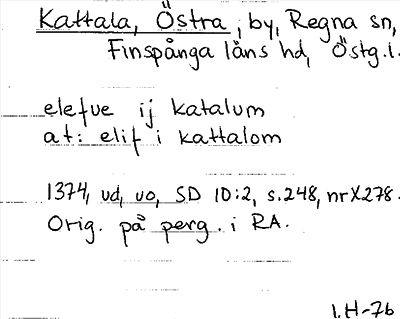 Kattala, Östra, by, Regna sn,
Finspånga läns hd, Östg.l.
elefue ij katalum
at: elif i kattalom
1374, ud, uo, SD 10:2, s.248, nr X278.
Orig. på perg. i RA.
I.H-76